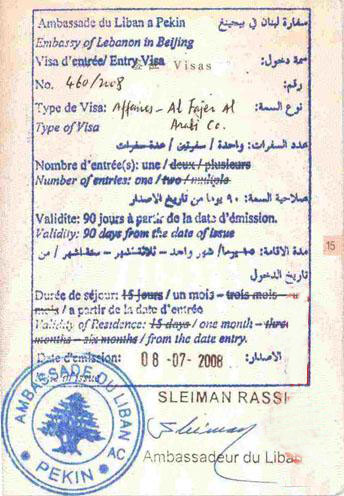 Ambassade du Liban a Pekin سفارة لبنان في بيجينغ
Embassy of Lebanon in Beijing
Visa d'entrée/ Entry Visa Visas سمة دخول:
No. 460/2008 رقم:
Type de Visa: Affaires - Al Fajer Al نوع السمة:
Type of Visa Arabi Co.
عدد السفرات: واحدة / سفرتين / عدة سفرات
Nombre d'entrée(s): une / deux / plusieurs
Number of entries: one / two / multiple
صلاحية السمة: ٩٠ يوما من تاريخ الاصدار
Validite: 90 jours à partir de la date d'émission.
Validity: 90 days from the date of issue
مدة الاقامة: ١٥ يوما/ شهر واحد - ثلاثة اشهر - ستة اشهر / من
تاريخ الدخول
Durée de séjour: 15 jours / un mois - trois mois -
mois / a partir de la date d'entrée
Validity of Residence: 15 days / one month - three
months - six months / from the date entry.
Date d'émission: 08-07-2008 الاصدار:
Date of Issue
15
AMBASSADE DU LIBAN
AC
PEKIN
SLEIMAN RASSI
Sleiman
Ambassadeur du Liban